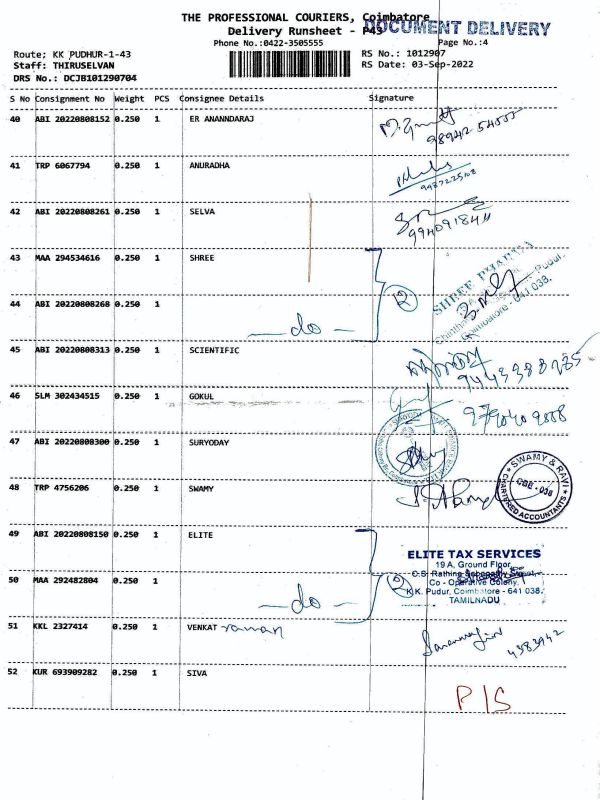 THE PROFESSIONAL COURIERS, Coimbatore
DOCUMENT DELIVERY
Delivery Runsheet - P43
Phone No.:0422-3505555 Page No.:4
Route; KK PUDHUR-1-43 RS No.: 1012907
Staff: THIRUSELVAN RS Date: 03-Sep-2022
DRS No.: DCJB101290704
S No Consignment No Weight PCS Consignee Details Signature
40 ABI 20220808152 0.250 1 ER ANANNDARAJ
41 TRP 6067794 0.250 1 ANURADHA
42 ABI 20220808261 0.250 1 SELVA
9940918411
43 MAA 294534616 0.250 1 SHREE
44 ABI 20220808268 0.250 1
do 2
SHREE
Coimbatore - 641 038.
45 ABI 20220808313 0.250 1 SCIENTIFIC
9443388785
46 SLM 302434515 0.250 1 GOKUL
47 ABI 20220808300 0.250 1 SURYODAY
48 TRP 4756206 0.250 1 SWAMY
SWAMY & RAVI
CBE - 038
CHARTERED ACCOUNTANTS
49 ABI 20220808150 0.250 1 ELITE
ELITE TAX SERVICES
19 A, Ground Floor,
50 MAA 292482804 0.250 1
do 2
Co - Operative Colony,
K.K. Pudur, Coimbatore - 641 038.
TAMILNADU
51 KKL 2327414 0.250 1 VENKAT raman
4383942
52 KUR 693909282 0.250 1 SIVA
P/S